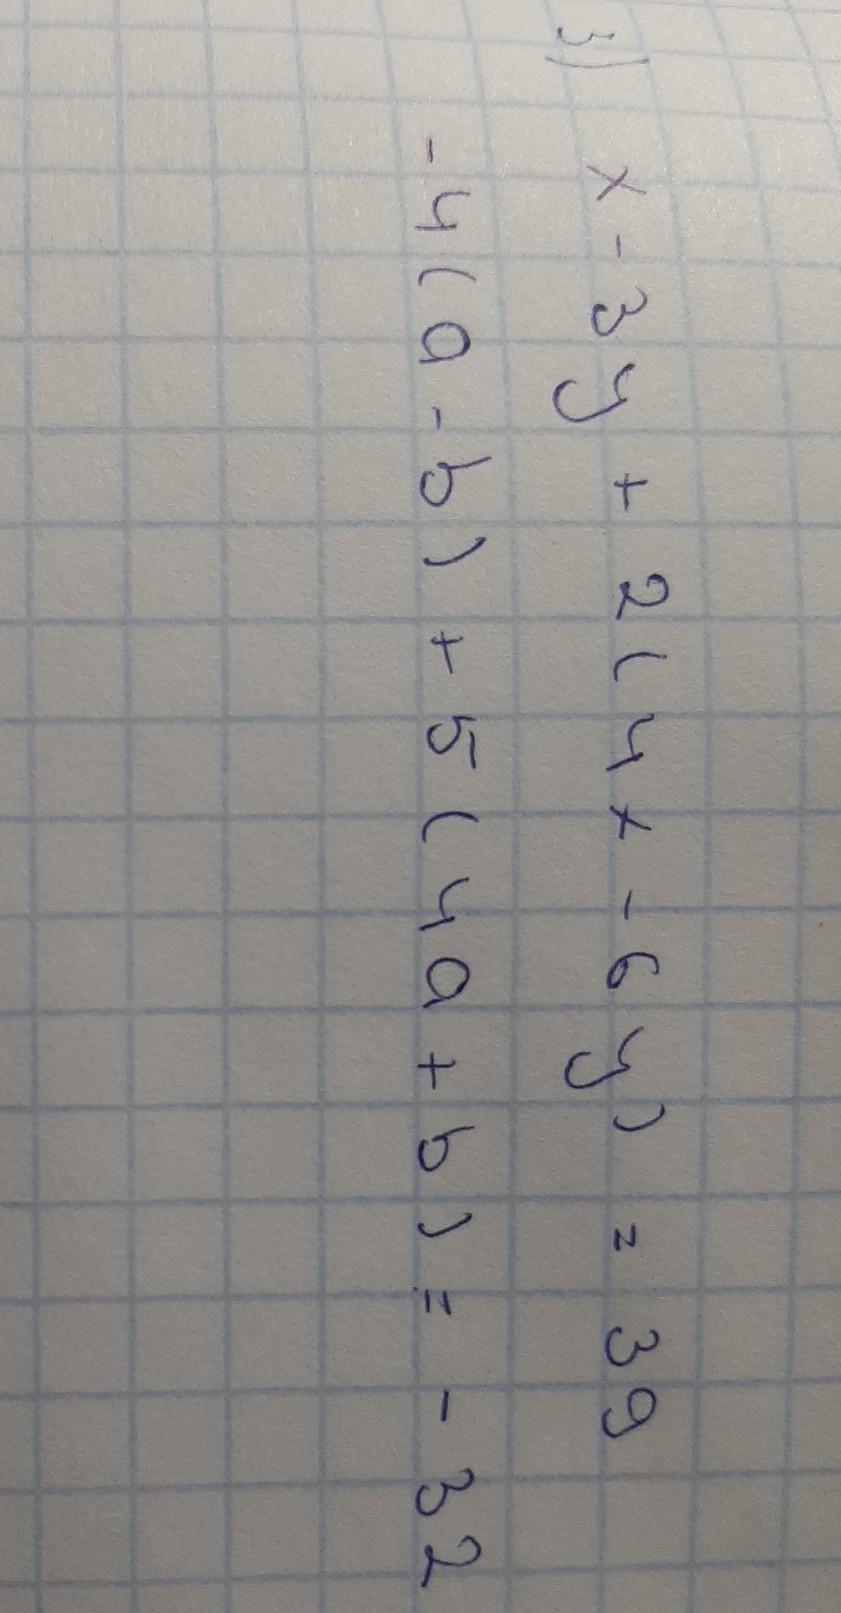 3) x - 3y + 2(4x - 6y) = 39
-4(a - b) + 5(4a + b) = - 32